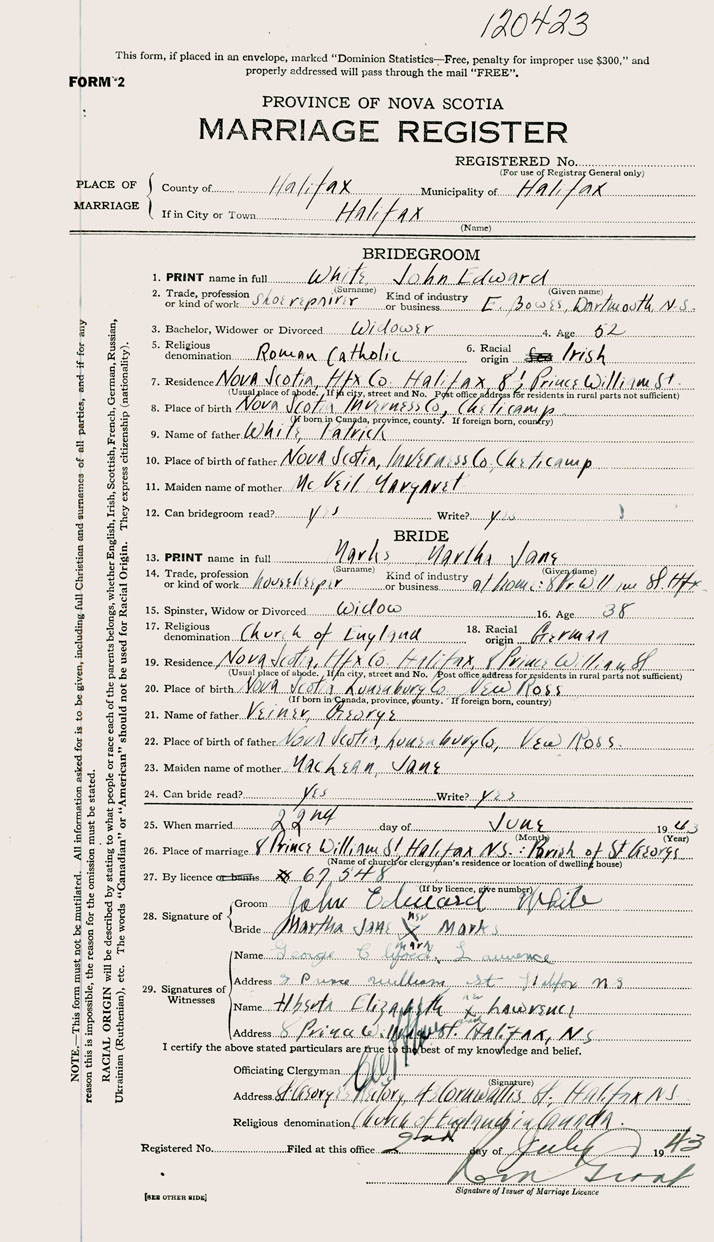 120423
This form, if placed in an envelope, marked "Dominion Statistics—Free, penalty for improper use $300," and
properly addressed will pass through the mail "FREE".
FORM 2
PROVINCE OF NOVA SCOTIA
MARRIAGE REGISTER
REGISTERED No.
(For use of Registrar General only)
PLACE OF MARRIAGE
County of Halifax Municipality of Halifax
If in City or Town Halifax
(Name)
BRIDEGROOM
1. PRINT name in full White, John Edward
(Surname) (Given name)
2. Trade, profession or kind of work shoerepairer Kind of industry or business E. Bower, Dartmouth, N.S.
3. Bachelor, Widower or Divorced Widower 4. Age 52
5. Religious denomination Roman Catholic 6. Racial origin Irish
7. Residence Nova Scotia, Hfx Co. Halifax, 8 Prince William St.
(Usual place of abode. If in city, street and No. Post office address for residents in rural parts not sufficient)
8. Place of birth Nova Scotia Inverness Co, Cheticamp
(If born in Canada, province, county. If foreign born, country)
9. Name of father White, Patrick
10. Place of birth of father Nova Scotia, Inverness Co, Cheticamp
11. Maiden name of mother McNeil Margaret
12. Can bridegroom read? yes Write? yes
BRIDE
13. PRINT name in full Marks Martha Jane
(Surname) (Given name)
14. Trade, profession or kind of work housekeeper Kind of industry or business at home: 8 Pr William St Hfx
15. Spinster, Widow or Divorced Widow 16. Age 38
17. Religious denomination Church of England 18. Racial origin German
19. Residence Nova Scotia, Hfx Co. Halifax, 8 Prince William St
(Usual place of abode. If in city, street and No. Post office address for residents in rural parts not sufficient)
20. Place of birth Nova Scotia Lunenburg Co. New Ross
(If born in Canada, province, county. If foreign born, country)
21. Name of father Veiner, George
22. Place of birth of father Nova Scotia, Lunenburg Co, New Ross.
23. Maiden name of mother MacLean, Jane
24. Can bride read? Yes Write? yes
25. When married 22nd day of June 1943
(Month) (Year)
26. Place of marriage 8 Prince William St, Halifax N.S.: Parish of St Georgs
(Name of church or clergyman's residence or location of dwelling house)
27. By licence or banns 67548
(If by licence, give number)
28. Signature of
Groom John Edward White
Bride Martha Jane X Marks
her
mark
29. Signatures of Witnesses
Name George Lawrence
Address 8 Prince William St Halifax N S
Name Alberta Elizabeth X Lawrence
Address 8 Prince William St. Halifax, NS
I certify the above stated particulars are true to the best of my knowledge and belief.
Officiating Clergyman
(Signature)
Address St Georges Rectory, Cornwallis St, Halifax NS
Religious denomination Church of England in Canada.
Registered No. Filed at this office 2nd day of July 1943
Signature of Issuer of Marriage Licence
[SEE OTHER SIDE]
NOTE.—This form must not be mutilated. All information asked for is to be given, including full Christian and surnames of all parties, and if for any
reason this is impossible, the reason for the omission must be stated.
RACIAL ORIGIN will be described by stating to what people or race each of the parents belongs, whether English, Irish, Scottish, French, German, Russian,
Ukrainian (Ruthenian), etc. The words "Canadian" or "American" should not be used for Racial Origin. They express citizenship (nationality).